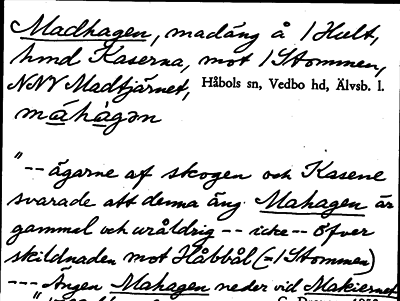 Madhagen, madäng å 1 Hult,
hmd Kaserna, mot 1 Stommen,
NNV Madtjärnet, Håbols sn, Vedbo hd, Älvsb. l.
máhàgən
"-- ägarne af skogen och Kasene
svarade att denna äng Mahagen är
gammal och uråldrig -- icke -- öfver
skildnaden mot Håbbål (= 1 Stommen)
--- Ängen Mahagen neder vid Makiernet